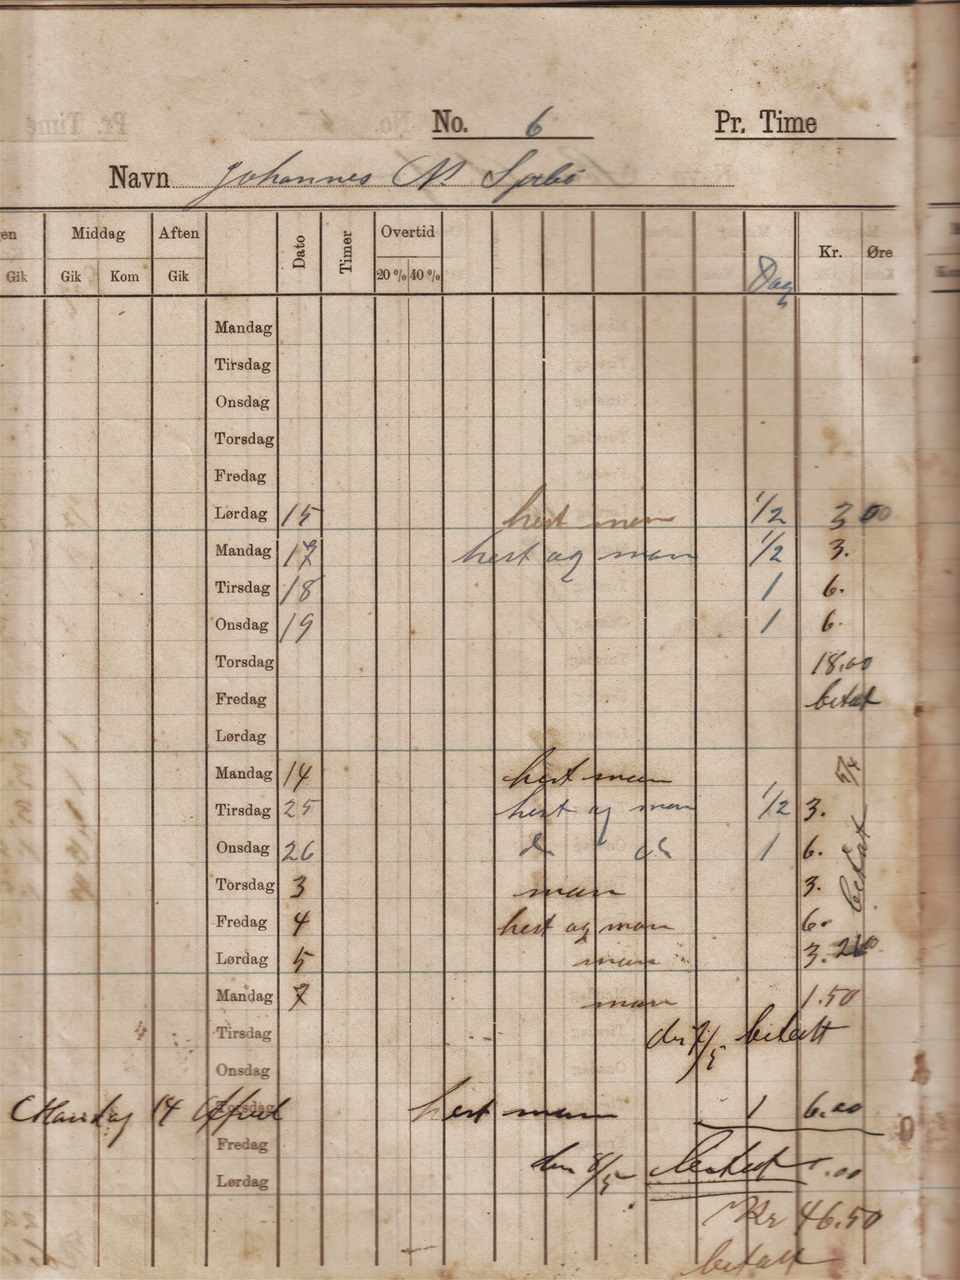 No. 6 Pr. Time
Navn Johannes N. Sæbø
en Middag Aften Dato Timer Overtid Kr. Øre
Gik Gik Kom Gik 20 % 40 % Dag
Mandag
Tirsdag
Onsdag
Torsdag
Fredag
Lørdag 15 hest man 1/2 3 00
Mandag 17 hest og man 1/2 3.
Tirsdag 18 1 6.
Onsdag 19 1 6.
Torsdag 18.00
Fredag betat
Lørdag
Mandag 14 hest man
Tirsdag 25 hest og man 1/2 3.
Onsdag 26 do do 1 6.
Torsdag 3 man 3.
Fredag 4 hest og man 6.
Lørdag 5 man 3.
betat
Mandag 7 man 1.50
Tirsdag den 7/5 betalt
Onsdag
Mandag 14 hest man 1 6.00
Fredag
Lørdag den 8/5
Kr 46.50
betalt